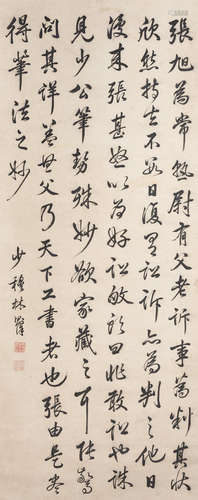 張旭為常熟尉有父老訴事為判其狀
欣然持去不數日復至訟訴亦為判之他日
復來張甚怒以為好訟敢於曰非敢訟也誠
見少公筆勢殊妙欲家藏之耳張驚
問其詳蓋其父乃天下工書者也張由是盡
得筆法之妙
少穆林